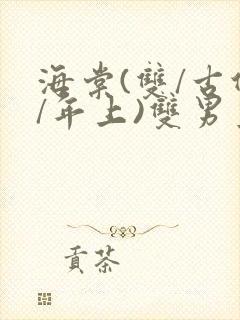 海棠(雙/古
/年上)雙男
貢茶